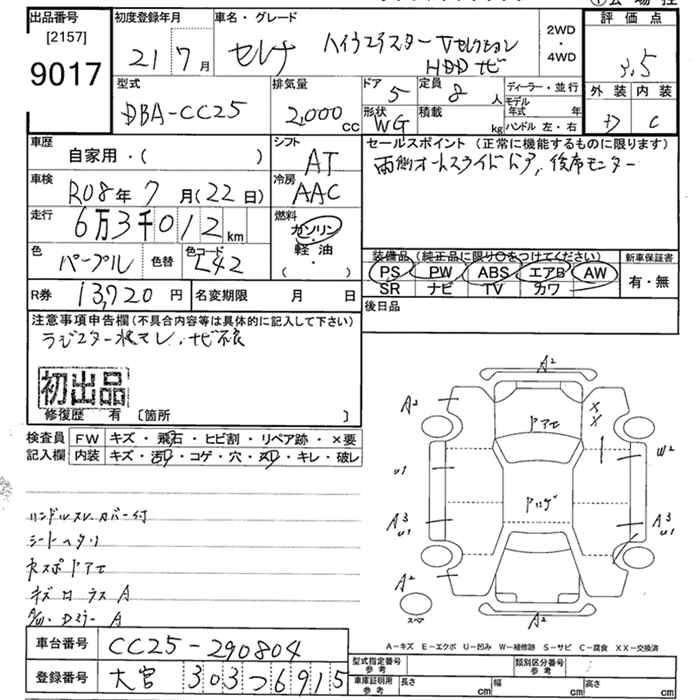 出品番号
[2157]
9017
初度登録年月
21 7月
車名・グレード
セレナ ハイウェイスター Vセレクション
HDDナビ
2WD
・
4WD
評価点
3.5
外装 内装
D C
型式
DBA-CC25
排気量
2,000 cc
ドア 5
定員 8人
形状 WG
積載 kg
ディーラー・並行
モデル年式 年
ハンドル 左・右
車歴
自家用・( )
シフト
AT
セールスポイント (正常に機能するものに限ります)
両側オートスライドドア, 後席モニター
車検
R08年 7月(22日)
冷房
AAC
走行
6万3千012km
燃料
ガソリン
・
軽油
( ・ )
色
パープル
色替
色コード
L42
装備品 (純正品に限り○をつけてください)
PS PW ABS エアB AW
SR ナビ TV カワ
新車保証書
有・無
R券 13,720円
名変期限 月 日
後日品
注意事項申告欄(不具合内容等は具体的に記入して下さい)
ラジエター水モレ、ナビ不良
初出品
修復歴 有 [箇所 ]
検査員 FW キズ・飛石・ヒビ割・リペア跡・×要
記入欄 内装 キズ・汚れ・コゲ・穴・スリ・キレ・破レ
ハンドルスレ、カバー付
シートヘタリ
キズ
A
A
A2
A2
ドアモ
××
W2
U1
A3
U1
A3
U1
A2
A2
スペア
A-キズ E-エクボ U-凹み W-補修跡 S-サビ C-腐食 XX-交換済
車台番号 CC25-290804
登録番号 大宮 303 つ 6915
型式指定番号 参考
類別区分番号 参考
車庫証明用 参考
長さ cm
幅 cm
高さ cm